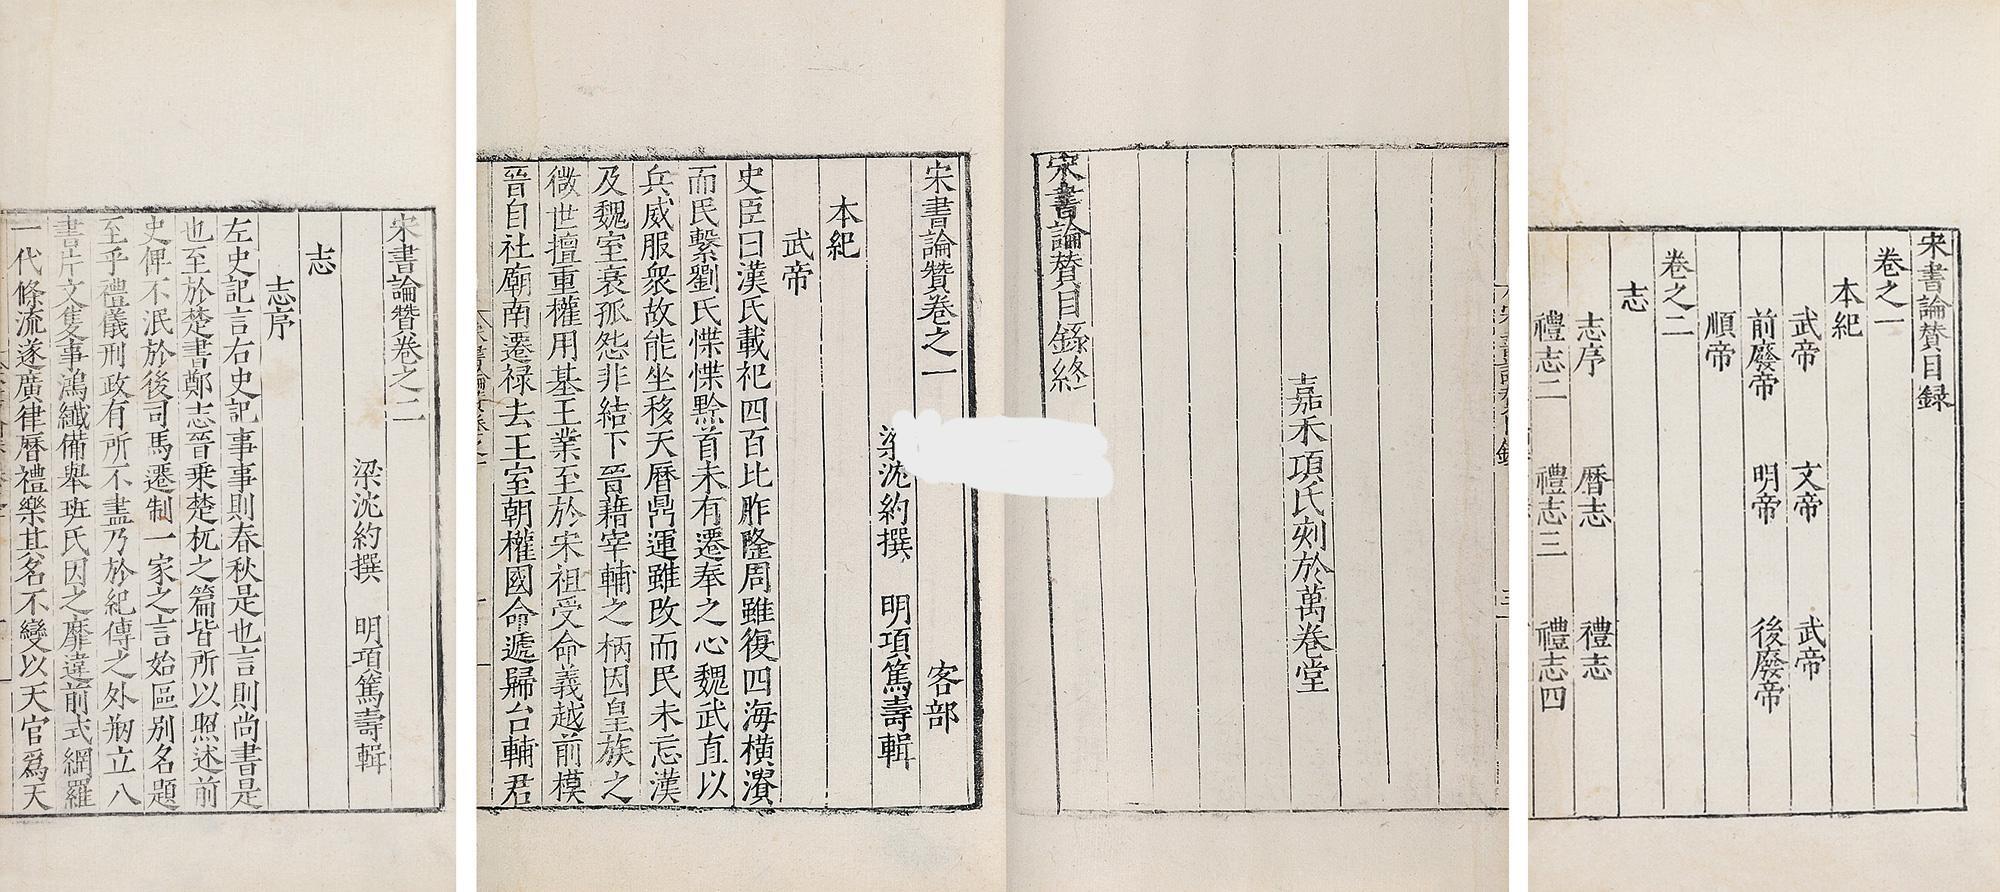 宋書論贊目録
卷之一
本紀
武帝 文帝 武帝
前廢帝 明帝 後廢帝
順帝
卷之二
志
志序 曆志 禮志
禮志二 禮志三 禮志四
嘉禾項氏刻於萬卷堂
宋書論贊目錄終
宋書論贊卷之一 客部
梁沈約撰 明項篤壽輯
本紀
武帝
史臣曰漢氏載祀四百比胙隆周雖復四海橫潰
而民繫劉氏惵惵黔首未有遷奉之心魏武直以
兵威服衆故能坐移天曆鼎運雖改而民未忘漢
及魏室衰孤怨非結下晉藉宰輔之柄因皇族之
微世擅重權用基王業至於宋祖受命義越前模
晉自社廟南遷祿去王室朝權國命遞歸台輔君
宋書論贊卷之二
梁沈約撰 明項篤壽輯
志
志序
左史記言右史記事事則春秋是也言則尚書是
也至於楚書鄭志晉乘楚杌之篇皆所以照述前
史俾不泯於後司馬遷制一家之言始區別名題
至乎禮儀刑政有所不盡乃於紀傳之外剏立八
書片文隻事鴻纖備舉班氏因之靡違前式網羅
一代條流遂廣律曆禮樂其名不變以天官爲天